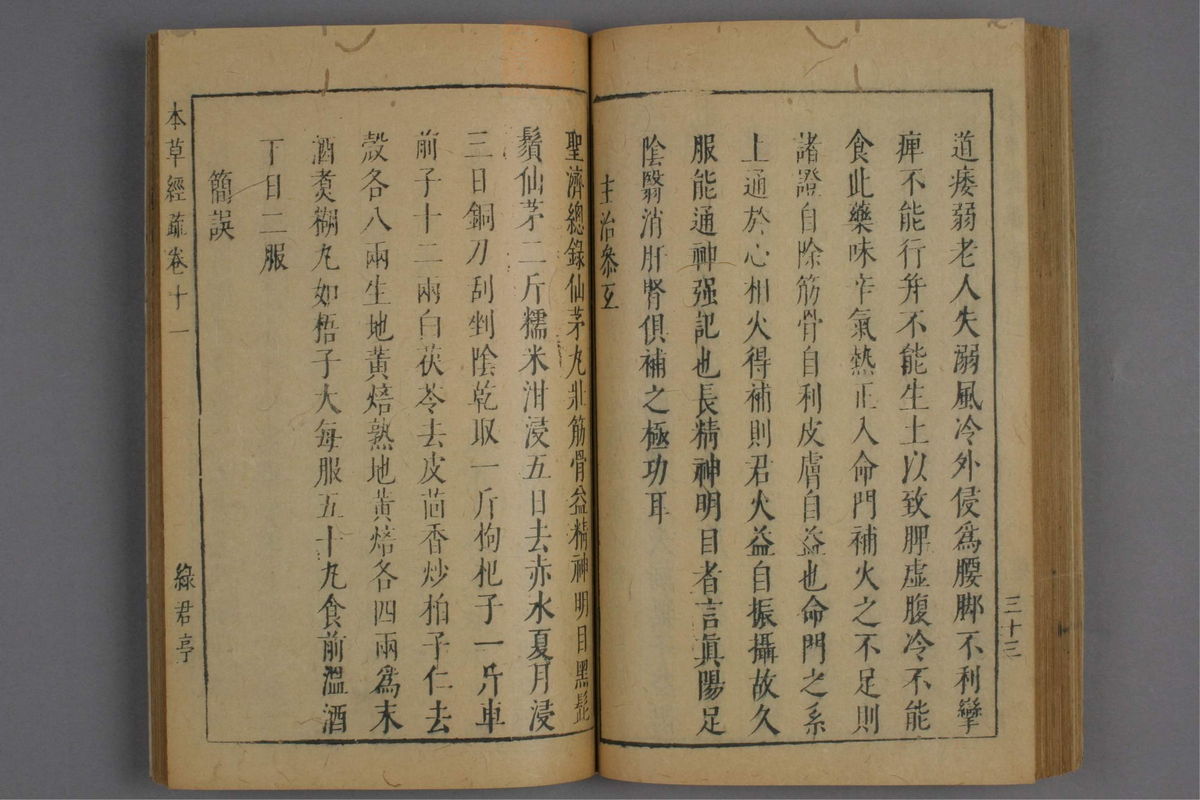 道痿弱老人失溺風冷外侵爲腰脚不利攣
痺不能行并不能生土以致脾虛腹冷不能
食此藥味辛氣熱正入命門補火之不足則
諸證自除筋骨自利皮膚自益也命門之系
上通於心相火得補則君火益自振攝故久
服能通神强記也長精神明目者言眞陽足
陰翳消肝腎俱補之極功耳
主治叅互
三十三
聖濟總錄仙茅丸壯筋骨益精神明目黑髭
鬚仙茅二斤糯米泔浸五日去赤水夏月浸
三日銅刀刮剉陰乾取一斤枸杞子一斤車
前子十二兩白茯苓去皮茴香炒柏子仁去
殼各八兩生地黃焙熟地黃焙各四兩爲末
酒煑糊丸如梧子大每服五十丸食前溫酒
下日二服
簡誤
本草經疏卷十一
綠君亭